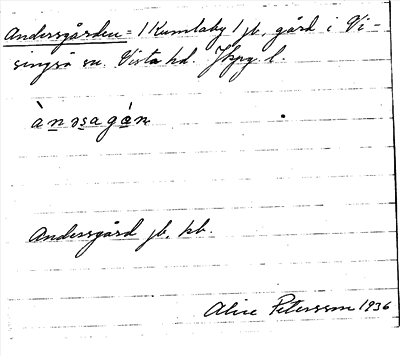 Andersgården = / Kumlaby / jb, gård i Vi-
singsö sn. Vista hd. Jkpg l.
ànəsagán
Andersgård jb, kb.
Alice Petersson 1936